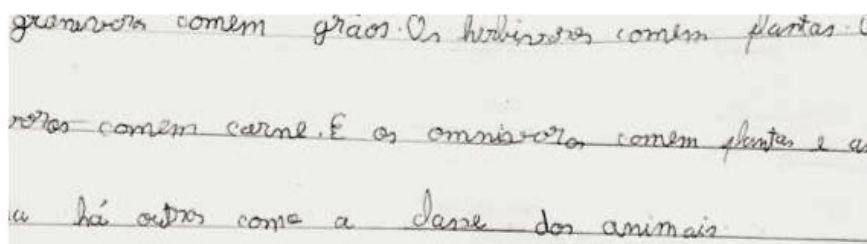 granivoros comem grãos. Os herbivoros comem plantas.
voros comem carne. E os omnivoros comem plantas e
há outros como a classe dos animais